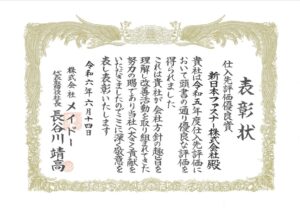 表彰状
仕入先評価優良賞
新日本ファスナー株式会社殿
貴社は令和五年度仕入先評価に
おいて頭書の通り優良な評価を
得られました
これは貴社が会社方針の趣旨を
理解し改善活動を取り組まれてきた
努力の賜であり当社へ大きく貢献
いただきましたのでここに深く敬意を
表し表彰いたします
令和六年六月十四日
株式会社メイドー
代表取締役社長 長谷川靖高